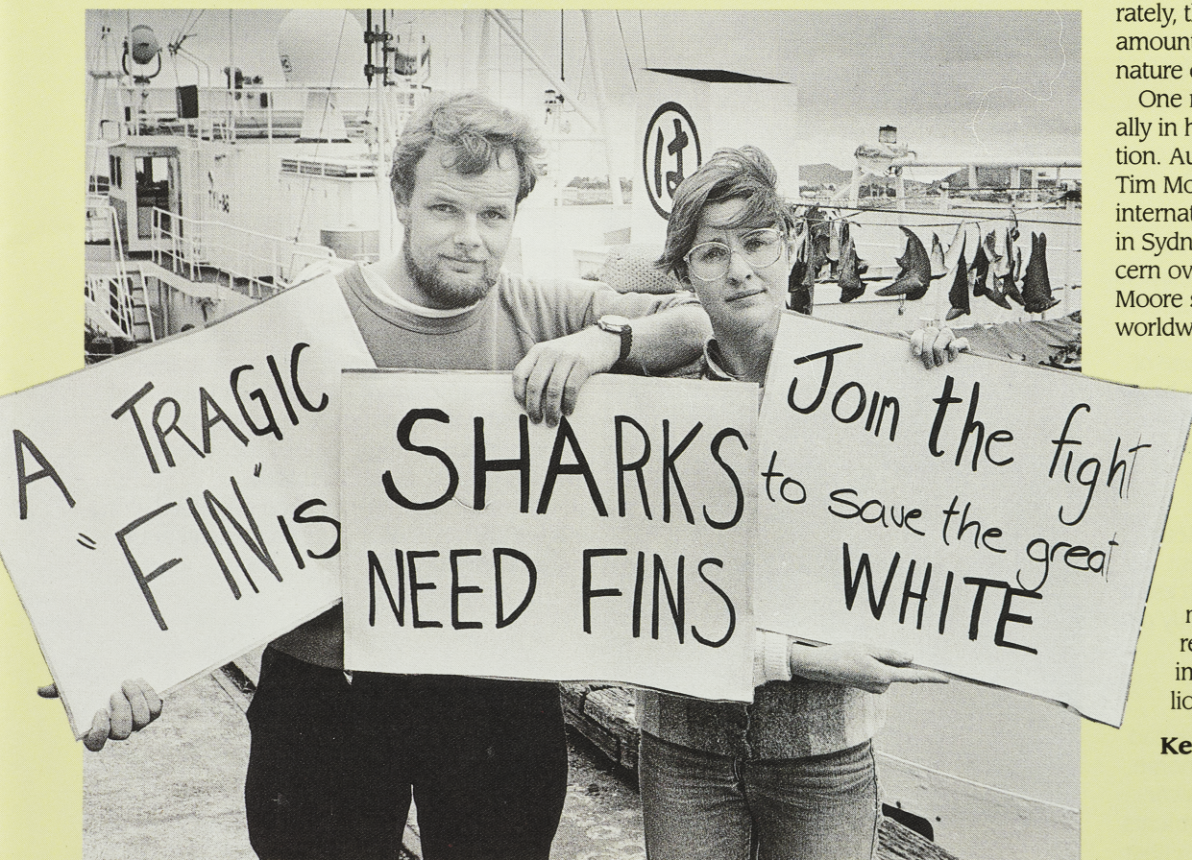 A TRAGIC
"FIN"IS
SHARKS
NEED FINS
Join the fight
to save the great
WHITE
は
rately,
amoun
nature
One
ally in
tion. Au
Tim Mo
internat
in Sydn
cern ov
Moore
worldw
re
in
lio
Ke